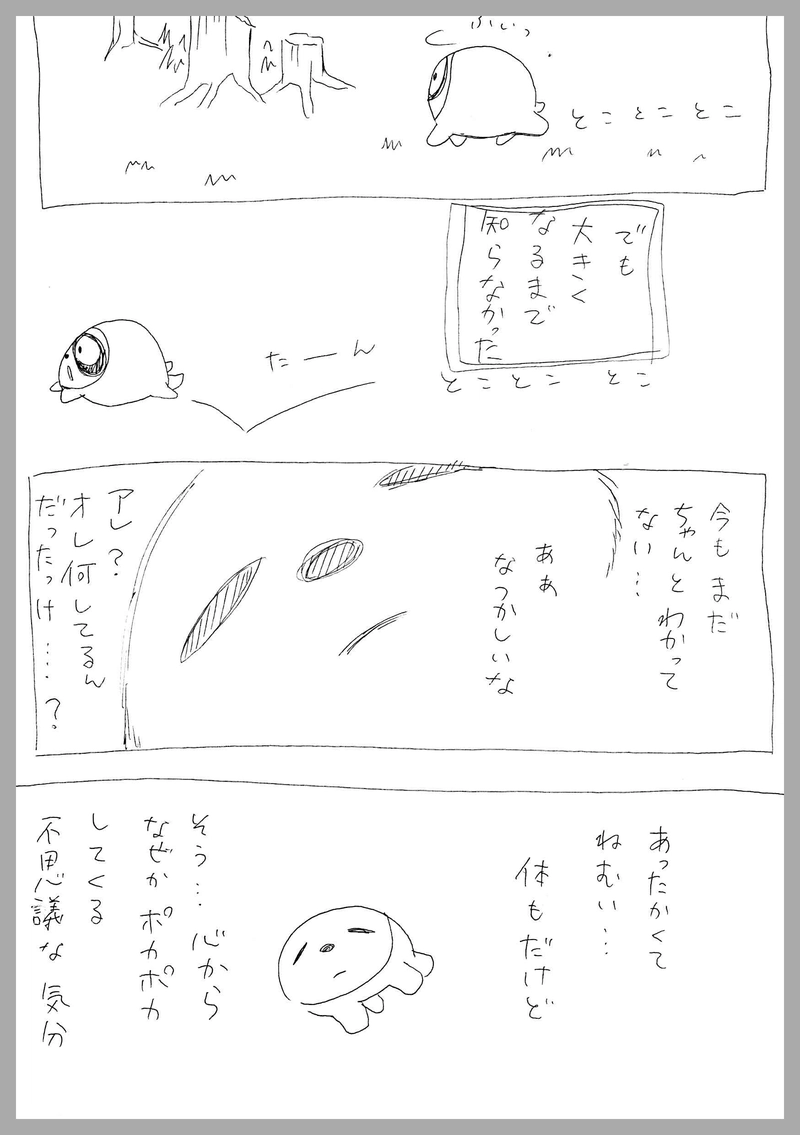 ぷいっ
とことことこ
でも
大きく
なるまで
知らなかった
とことこ とこ
たーん
今もまだ
ちゃんとわかって
ない…
ああ
なつかしいな
アレ？
オレ何してるん
だったっけ…？
あったかくて
ねむい…
体もだけど
そう…心から
なぜかポカポカ
してくる
不思議な気分